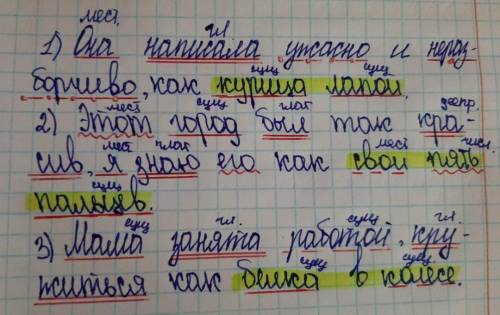 мест. гл.
1) Она написала ужасно и нераз-
сущ сущ
борчиво, как курица лапой.
мест сущ глаг
2) Этот город был так кра-
мест глаг мест числ.
сив, я знаю его как свои пять
сущ
пальцев.
сущ гл. сущ гл.
3) Мама занята работой, кру-
сущ сущ
житься как белка в колесе.